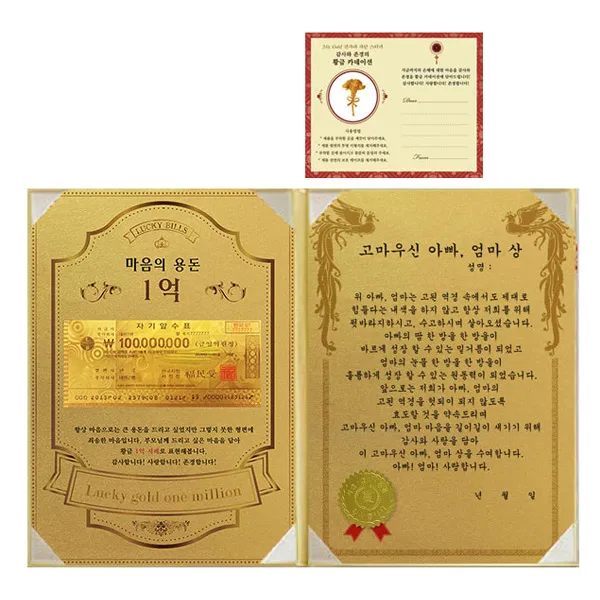 감사와 존경의
황금 카네이션
Dear
사용방법
From
LUCKY BILLS
마음의 용돈
1억
자기앞수표
₩ 100,000,000
福民愛
항상 마음으로는 큰 용돈을 드리고 싶었지만 그렇지 못한 형편에
죄송한 마음입니다. 부모님께 드리고 싶은 마음을 담아
황금 1억 지폐로 표현해봅니다.
감사합니다! 사랑합니다! 존경합니다!
Lucky gold one million
고마우신 아빠, 엄마 상
성명 :
위 아빠, 엄마는 고된 역경 속에서도 제대로
힘들다는 내색을 하지 않고 항상 저희를 위해
뒷바라지하시고, 수고하시며 살아오셨습니다.
아빠의 땀 한 방울 한 방울이
바르게 성장 할 수 있는 밑거름이 되었고
엄마의 눈물 한 방울 한 방울이
훌륭하게 성장 할 수 있는 원동력이 되었습니다.
앞으로는 저희가 아빠, 엄마의
고된 역경을 헛되이 되지 않도록
효도할 것을 약속드리며
고마우신 아빠, 엄마 마음을 길이길이 새기기 위해
감사와 사랑을 담아
이 고마우신 아빠, 엄마 상을 수여합니다.
아빠! 엄마! 사랑합니다.
년 월 일